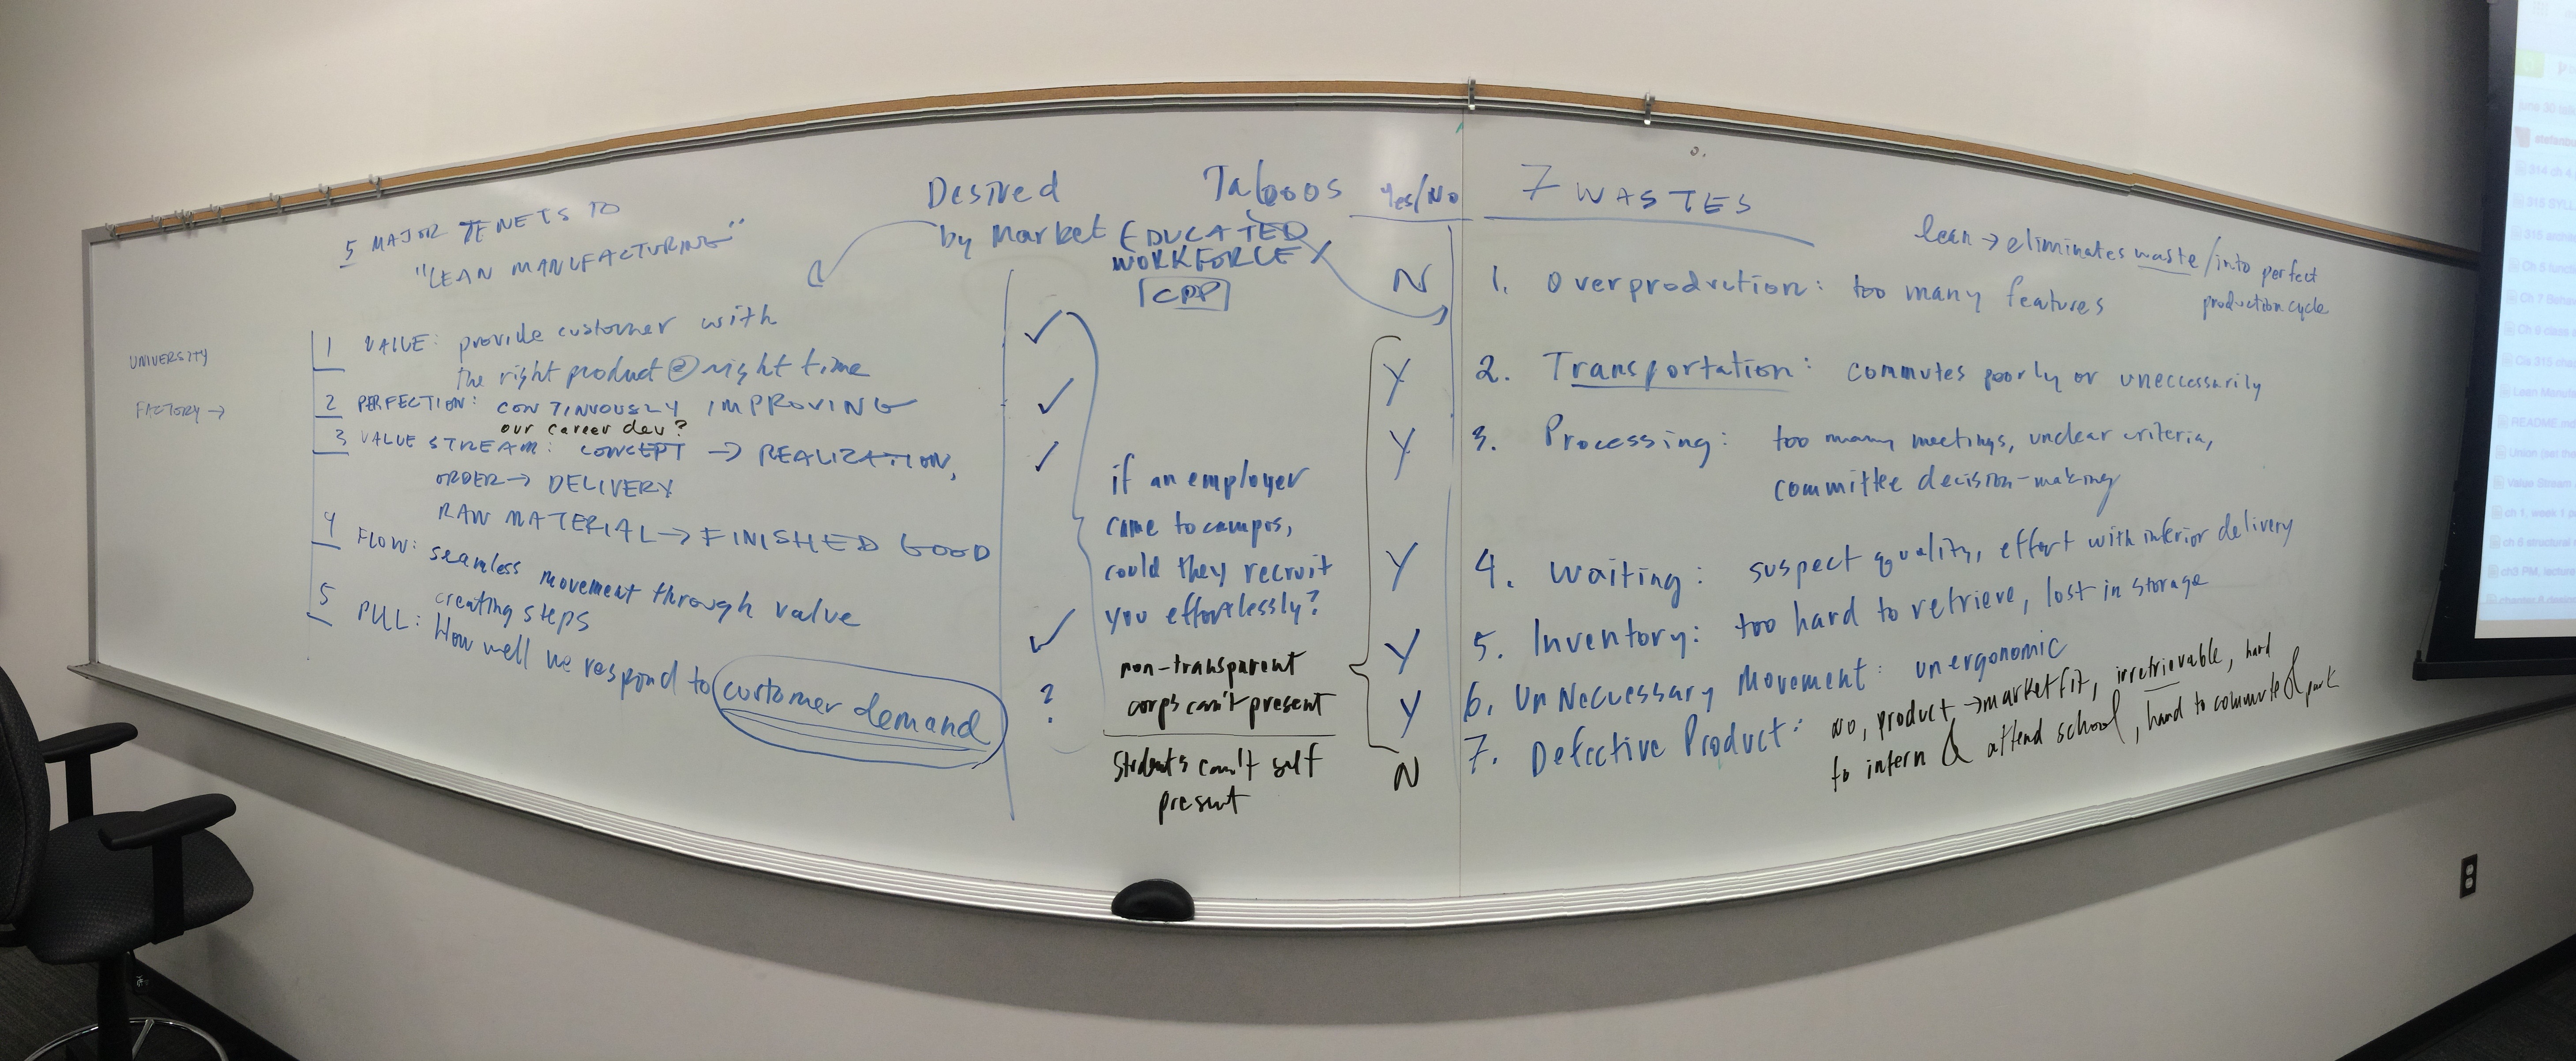 5 MAJOR TENETS TO
"LEAN MANUFACTURING"
UNIVERSITY
FACTORY →
1 VALUE: provide customer with
the right product @ right time
2 PERFECTION: CONTINUOUSLY IMPROVING
our career dev?
3 VALUE STREAM: CONCEPT → REALIZATION,
ORDER → DELIVERY
RAW MATERIAL → FINISHED GOOD
4 FLOW: seamless movement through value
creating steps
5 PULL: How well we respond to customer demand
Desired
by Market
✓
✓
✓
✓
?
Taboos
EDUCATED
WORKFORCE
[CPP]
if an employer
came to campus,
could they recruit
you effortlessly?
non-transparent
corps can't present
students can't self
present
Yes/No
N
Y
Y
Y
Y
Y
N
7 WASTES
lean → eliminates waste/into perfect
production cycle
1. Overproduction: too many features
2. Transportation: commutes poorly or uneccessarily
3. Processing: too many meetings, unclear criteria,
committee decision-making
4. Waiting: suspect quality, effort with inferior delivery
5. Inventory: too hard to retrieve, lost in storage
6. UnNeccessary Movement: unergonomic
7. Defective Product: no, product → market fit, irretrievable, hard
to intern & attend school, hard to commute & park